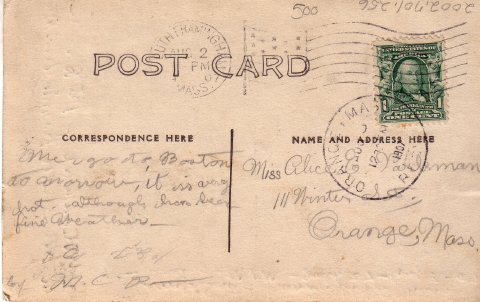 500
2002.701.256
SOUTH FRAMINGHAM
AUG 2
PM
MASS.
POST CARD
1
ONE CENT
ORANGE MASS
CORRESPONDENCE HERE
NAME AND ADDRESS HERE
We go to Boston
tomorrow, it is very
hot, although have been
fine Weather
by M. C. R
Miss Alice
111 Winter St.
Orange, Mass.